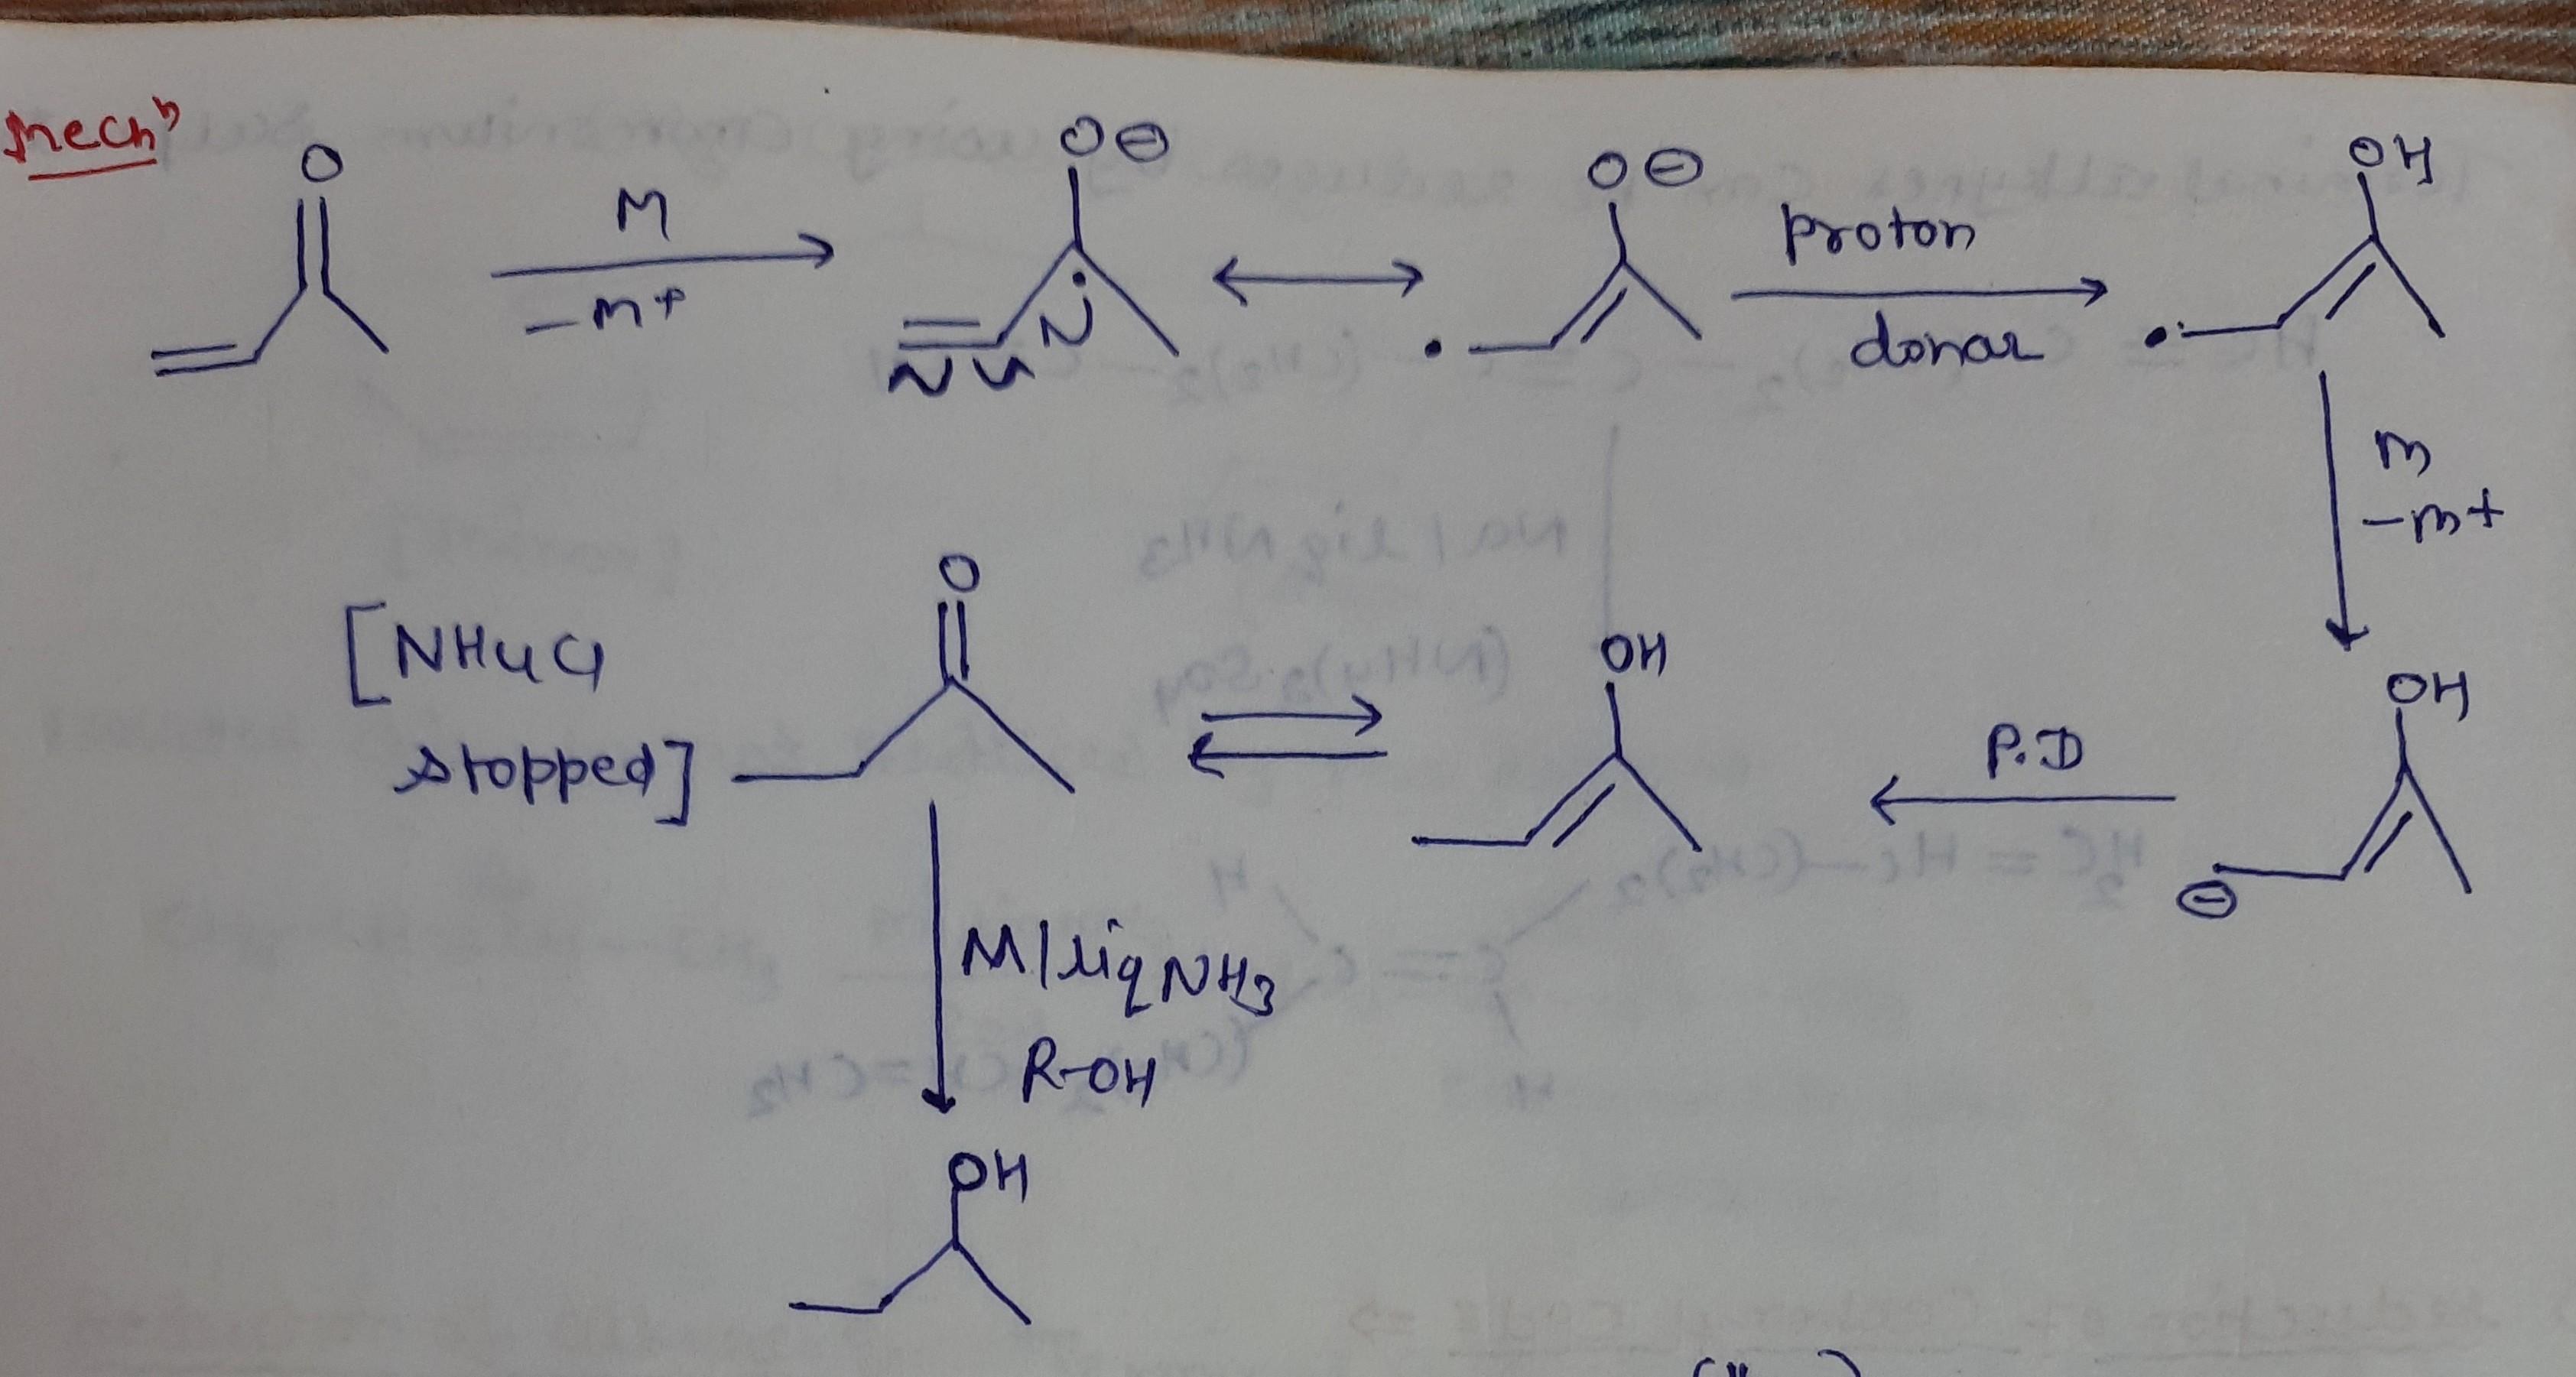 Mechn
O
O⊖
O⊖
OH
M
-m+
Proton
donar
M
-m+
[NH4Cl
stopped]
O
OH
OH
P.D
⊖
M/liq NH3
R-OH
OH